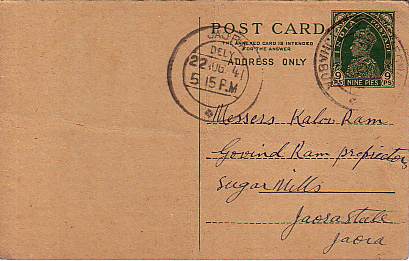 POST CARD
THE ANNEXED CARD IS INTENDED
FOR THE ANSWER
ADDRESS ONLY
INDIA POSTAGE
9 PS
9 PS
NINE PIES
DELY
22 AUG 41
5 15 P.M
Messers Kalov Ram
Govind Ram propietors
Sugar Mills
Jaorastate
Jaora